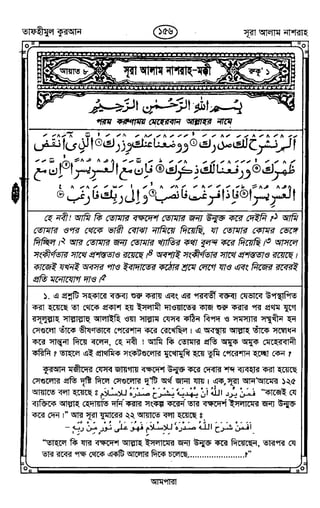 তাফহীমুল কুরআন ১৫৬ সূরা আলাম নাশরাহ
আয়াত ৮ সূরা আলাম নাশরাহ-মক্কী রুকূ' ১
بِسْمِ اللَّهِ الرَّحْمَٰنِ الرَّحِيمِ
পরম করুণাময় মেহেরবান আল্লাহর নামে
أَلَمْ نَشْرَحْ لَكَ صَدْرَكَ ۝ وَوَضَعْنَا عَنْكَ وِزْرَكَ ۝ الَّذِي أَنْقَضَ
ظَهْرَكَ ۝ وَرَفَعْنَا لَكَ ذِكْرَكَ ۝ فَإِنَّ مَعَ الْعُسْرِ يُسْرًا ۝ إِنَّ مَعَ
الْعُسْرِ يُسْرًا ۝ فَإِذَا فَرَغْتَ فَانْصَبْ ۝ وَإِلَىٰ رَبِّكَ فَارْغَبْ ۝
হে নবী! আমি কি তোমার বক্ষদেশ তোমার জন্য উন্মুক্ত করে দেইনি?১ আমি
তোমার ওপর থেকে ভারী বোঝা নামিয়ে দিয়েছি, যা তোমার কোমর ভেংগে
দিচ্ছিল।২ আর তোমার জন্য তোমার খ্যাতির কথা বুলন্দ করে দিয়েছি।৩ আসলে
সংকীর্ণতার সাথে প্রশস্ততাও রয়েছে।৪ অবশ্যই সংকীর্ণতার সাথে প্রশস্ততাও রয়েছে।
কাজেই যখনই অবসর পাও ইবাদাতের কঠোর শ্রমে লেগে যাও এবং নিজের রবেরই
প্রতি মনোযোগ দাও।৫
১. এ প্রশ্নটি সহকারে বক্তব্য শুরু করায় এবং এর পরবর্তী বক্তব্য যেভাবে উপস্থাপিত
করা হয়েছে তা থেকে প্রকাশ হয় ইসলামী দাওয়াতের কাজ শুরু করার পর প্রথম যুগে
রসূলুল্লাহ সাল্লাল্লাহু আলাইহি ওয়া সাল্লাম যেসব কঠিন বিপদ ও সমস্যার সম্মুখীন হন
সেগুলো তাঁকে ভীষণভাবে পেরেশান করে রেখেছিল। এ অবস্থায় আল্লাহ তাঁকে সম্বোধন
করে সান্ত্বনা দিয়ে বলেন, হে নবী! আমি কি তোমার প্রতি অমুক অমুক মেহেরবানী
করিনি? তাহলে এই প্রাথমিক সংকটগুলোর মুখোমুখি হয়ে তুমি পেরেশান হচ্ছো কেন?
কুরআন মজীদের যেসব জায়গায় বক্ষদেশ উন্মুক্ত করে দেবার শব্দ ব্যবহার করা হয়েছে
সেগুলোর প্রতি দৃষ্টি দিলে সেগুলোর দু'টি অর্থ জানা যায়। এক, সূরা আন'আমের ১২৫
আয়াতে বলা হয়েছে ঃ فَمَنْ يُرِدِ اللَّهُ أَنْ يَهْدِيَهُ يَشْرَحْ صَدْرَهُ لِلْإِسْلَامِ "কাজেই যে
ব্যক্তিকে আল্লাহ হেদায়াত দান করার সংকল্প করেন তার বক্ষদেশ ইসলামের জন্য উন্মুক্ত
করে দেন।" আর সূরা যুমারের ২২ আয়াতে বলা হয়েছে ঃ
أَفَمَنْ شَرَحَ اللَّهُ صَدْرَهُ لِلْإِسْلَامِ فَهُوَ عَلَىٰ نُورٍ مِنْ رَبِّهِ -
"তাহলে কি যার বক্ষদেশ আল্লাহ ইসলামের জন্য উন্মুক্ত করে দিয়েছেন, তারপর যে
তার রবের পক্ষ থেকে একটি আলোর দিকে চলেছে........................?"
আমপারা